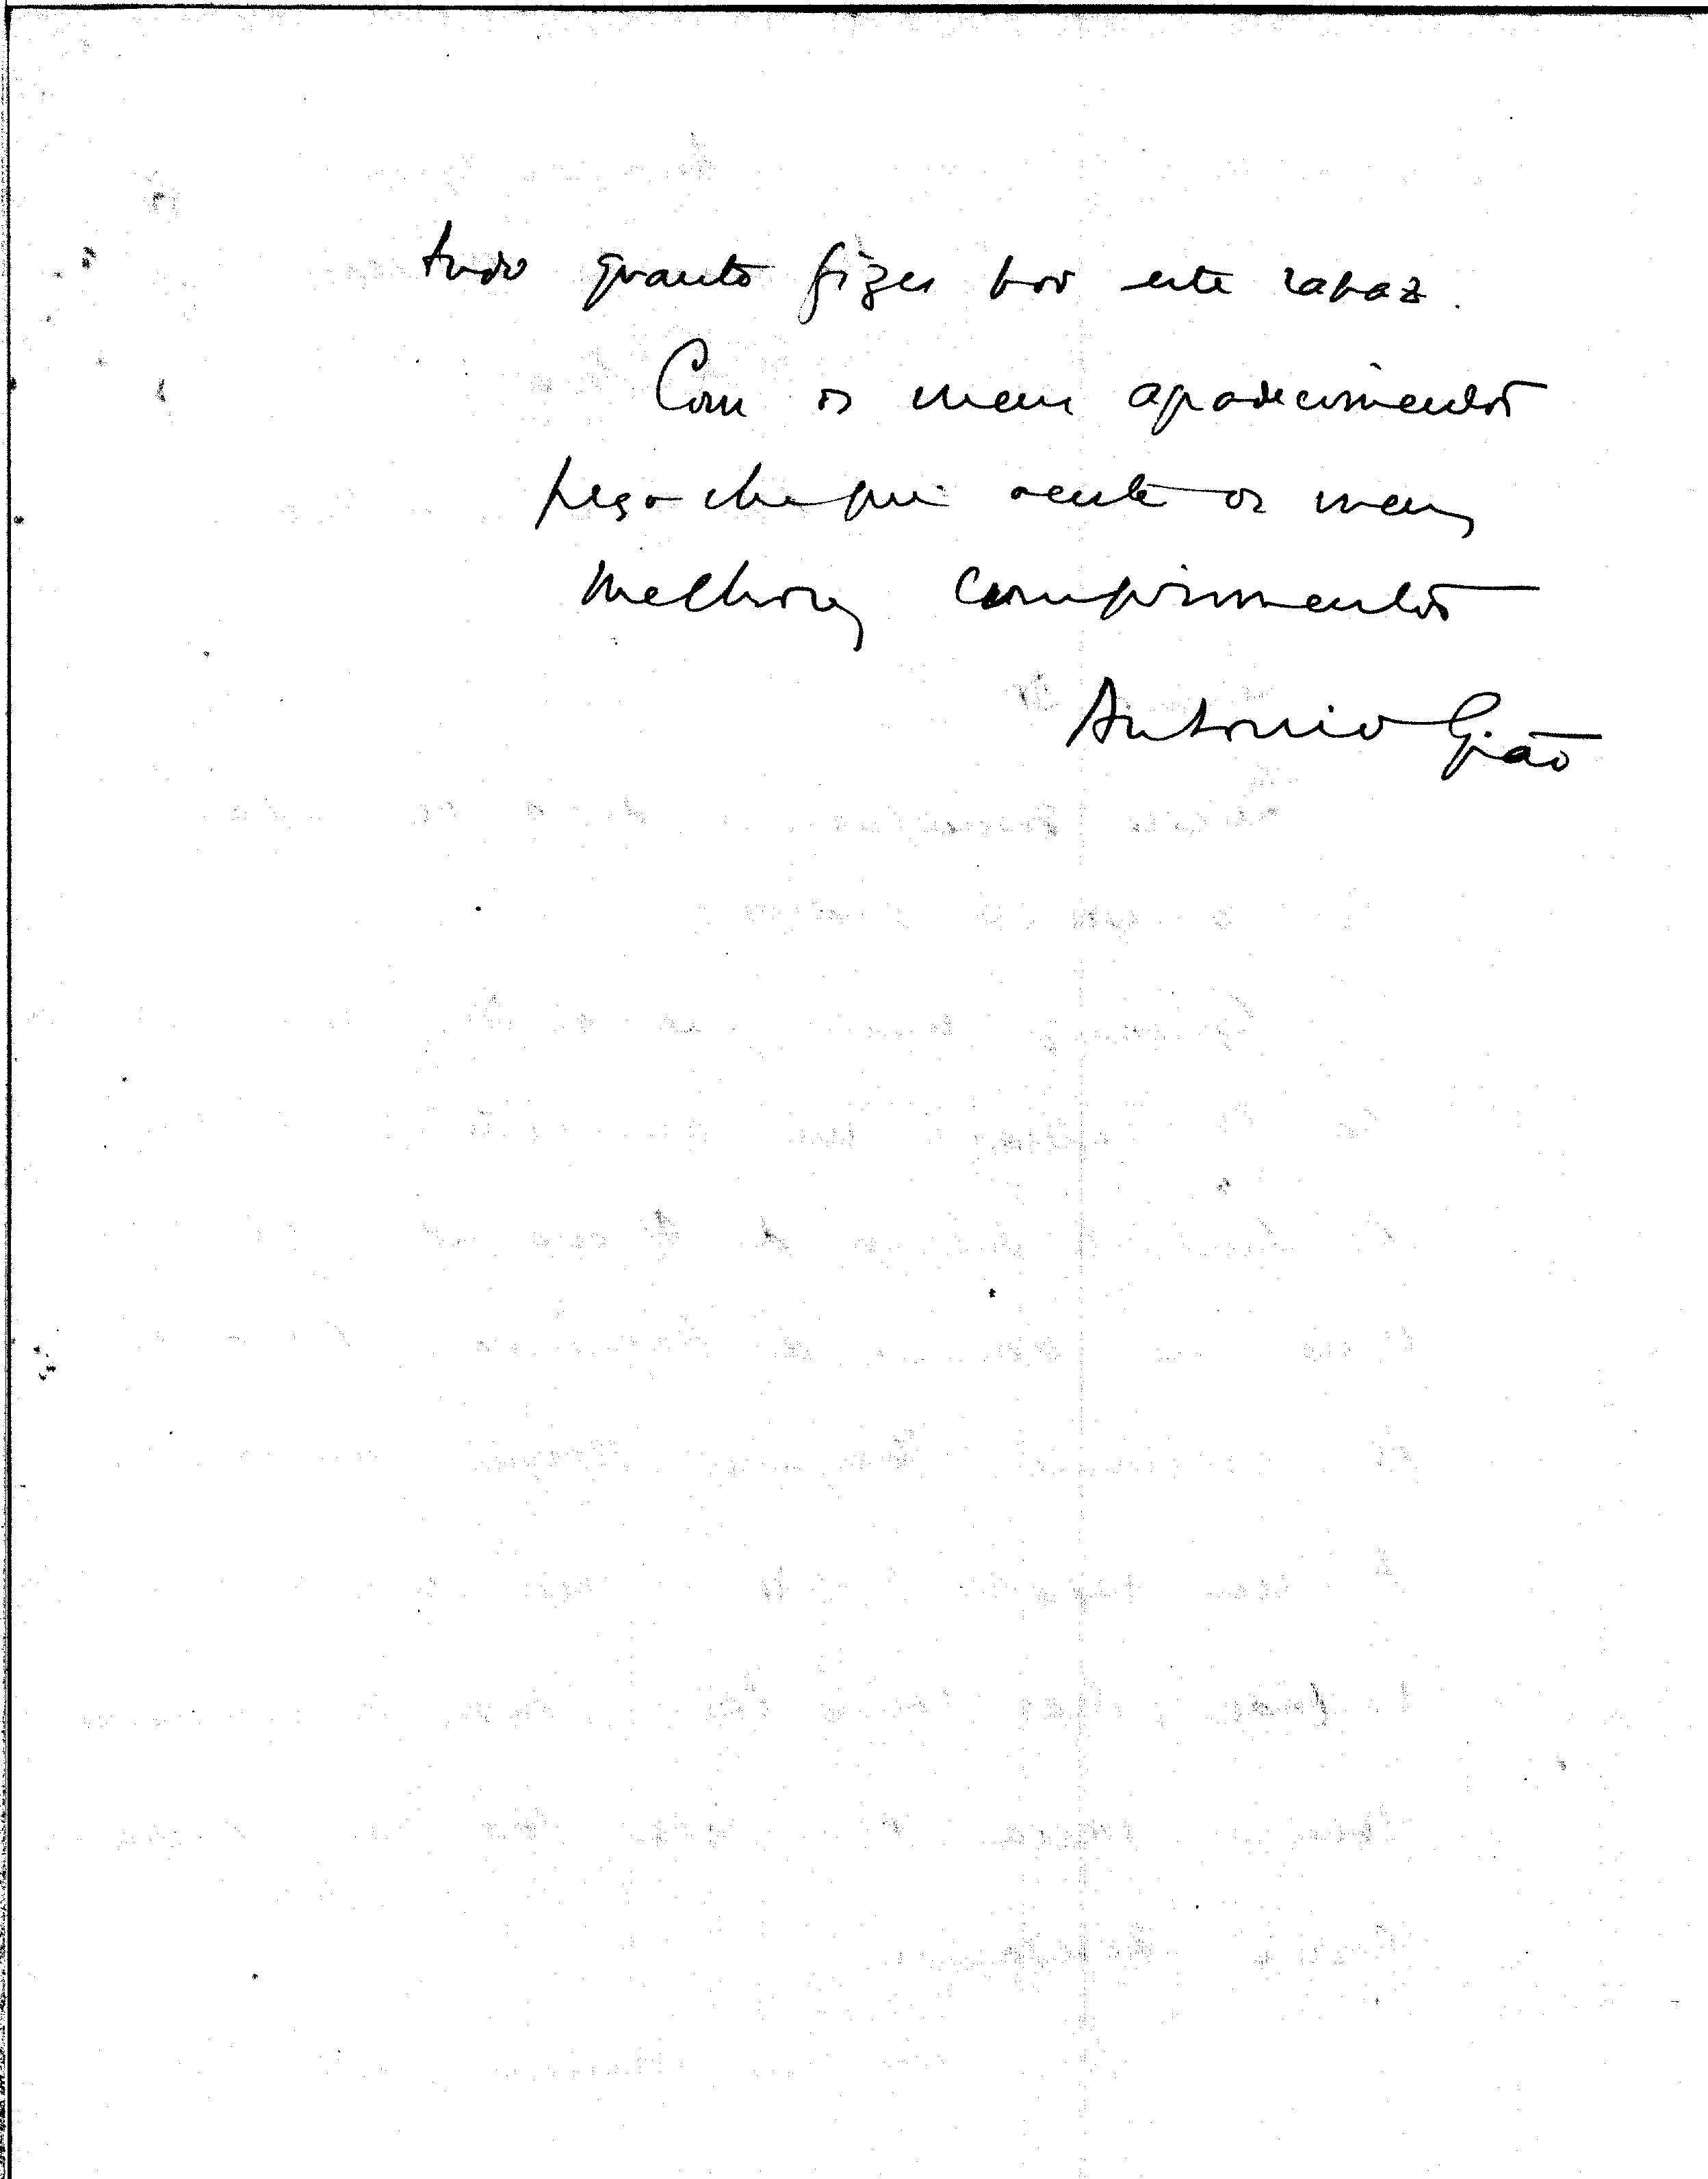 tudo quanto fizer por este rapaz.
Com os meus agradecimentos
peço-lhe que aceite os meus
melhores cumprimentos
Antonio Gião